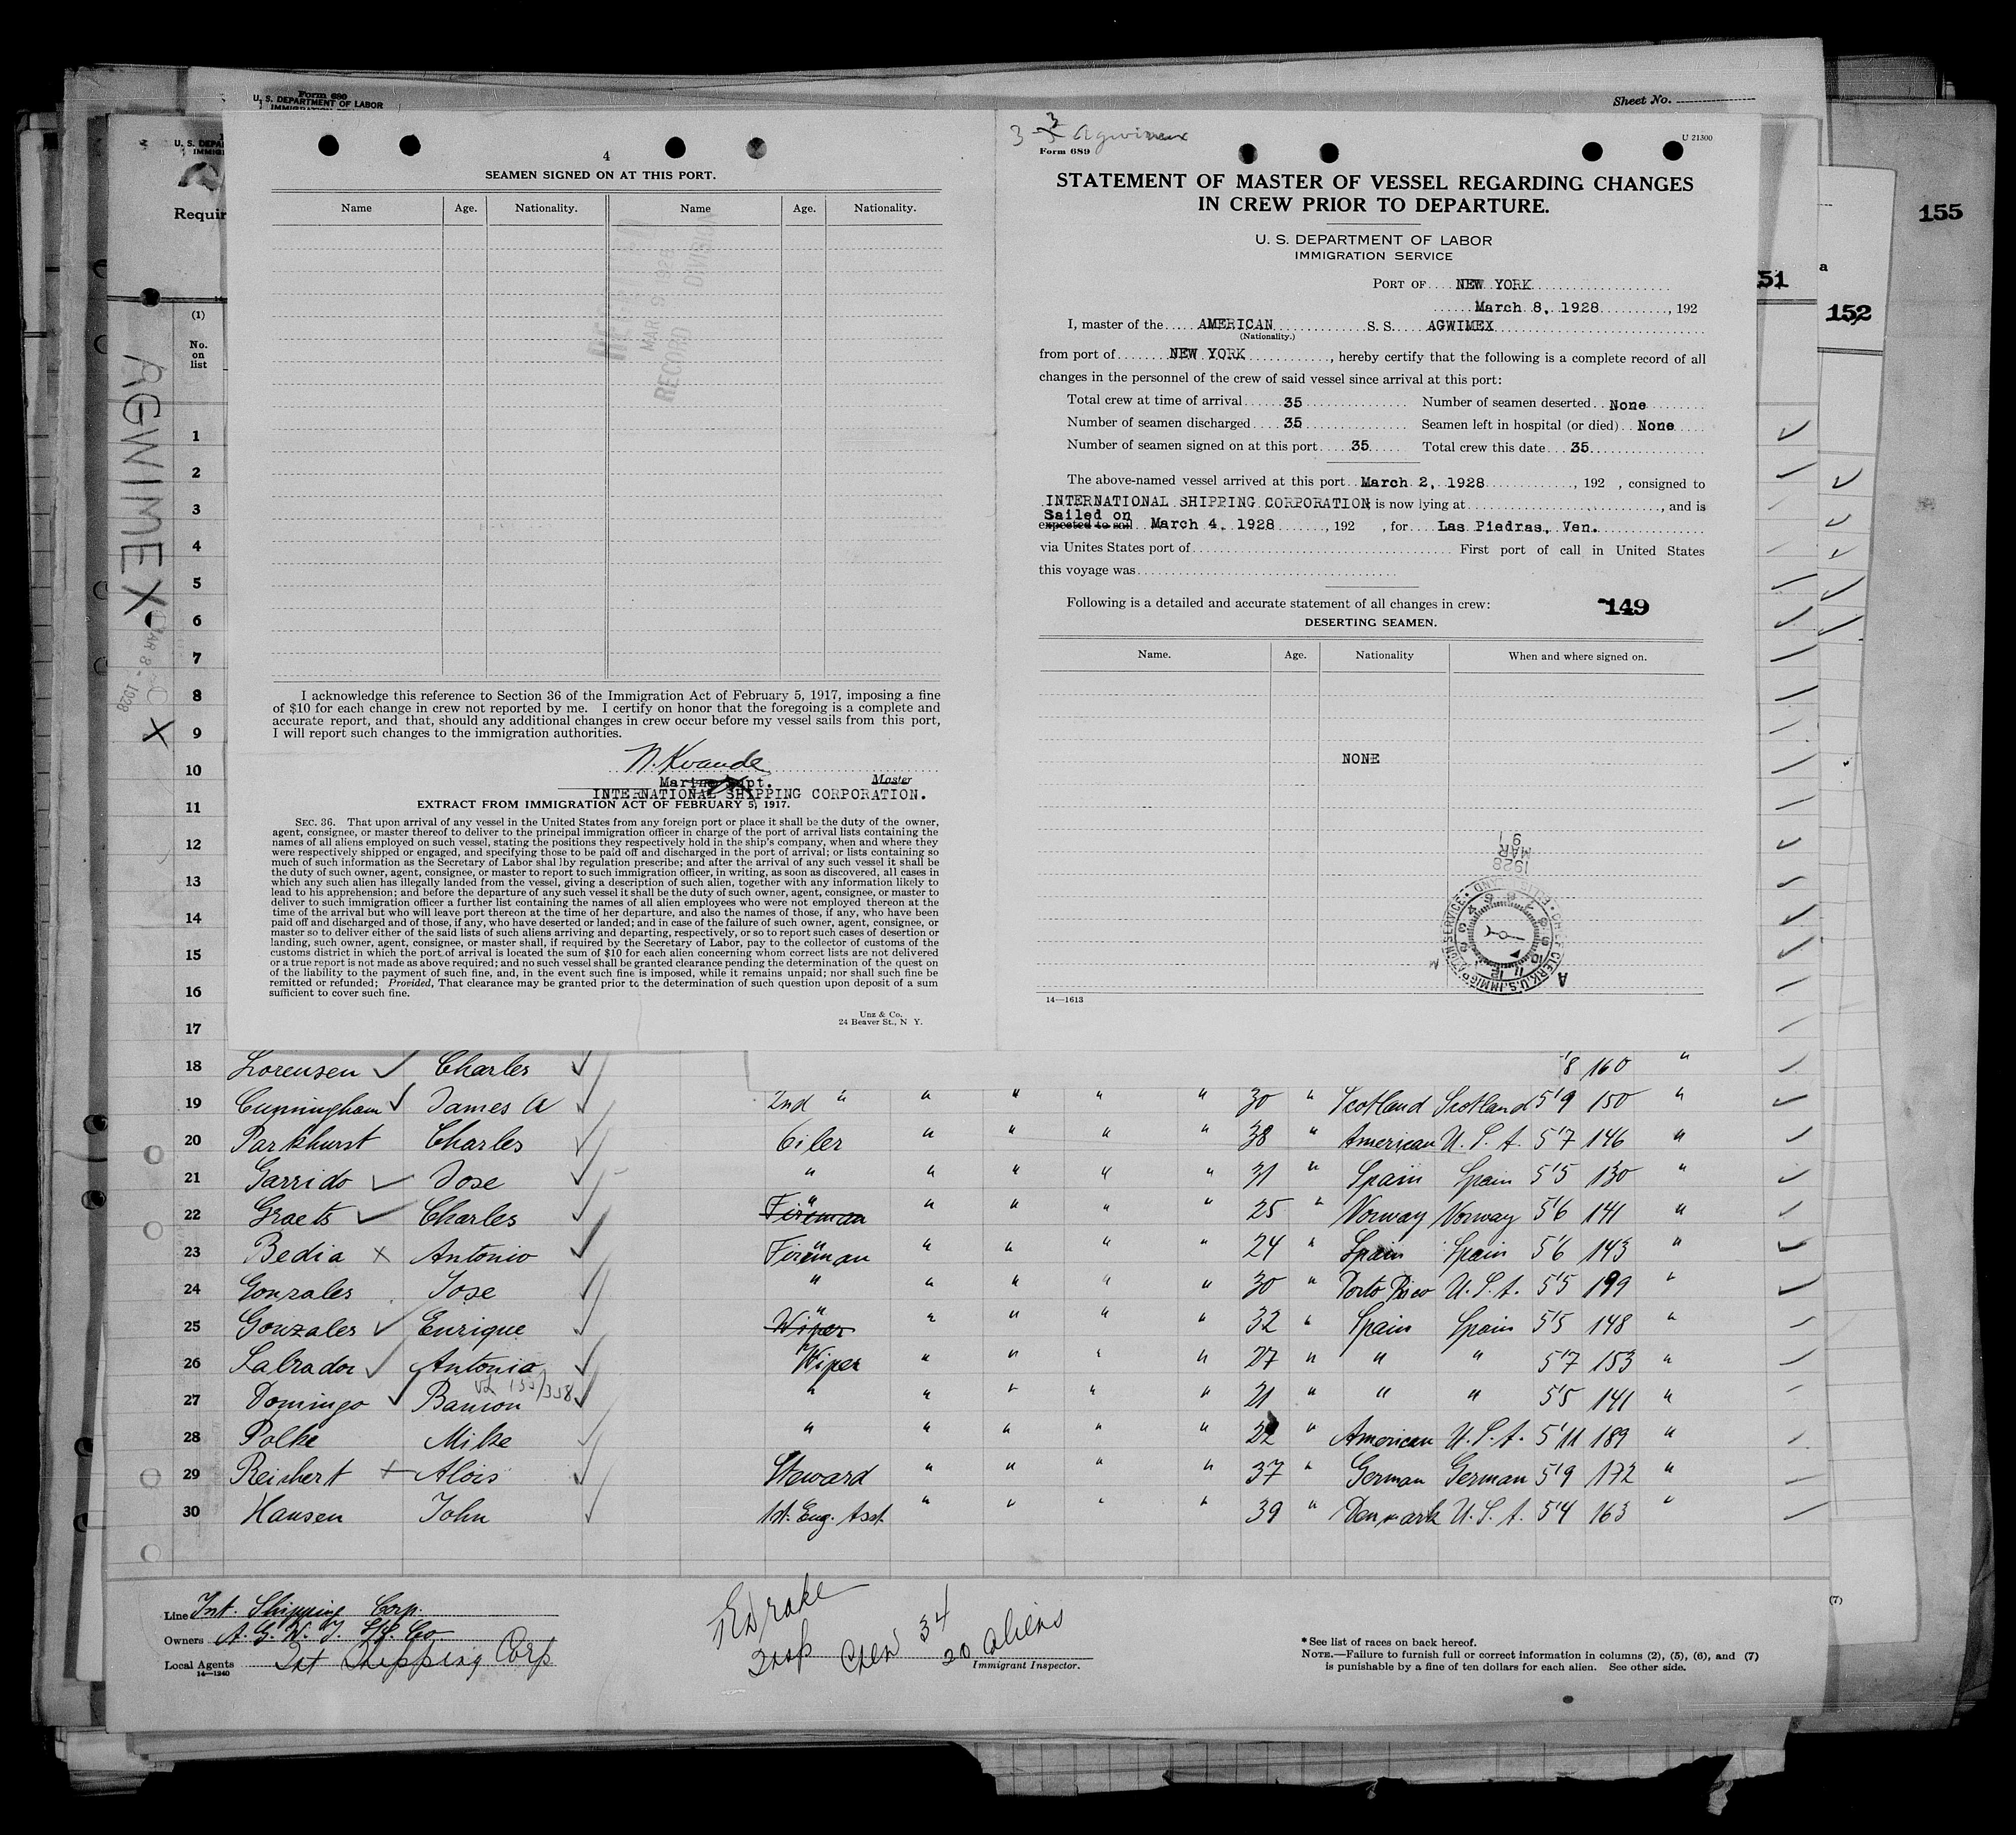 Form 689
U. S. DEPARTMENT OF LABOR
Sheet No.
155
51
a
152
U. S. DEPA
IMMIG
Requir
(1)
No.
on
list
AGWIMEX
MAR 8 - 1928
X
4
SEAMEN SIGNED ON AT THIS PORT.
Name Age. Nationality. Name Age. Nationality.
MAR 9 1928
RECORD DIVISION
I acknowledge this reference to Section 36 of the Immigration Act of February 5, 1917, imposing a fine
of $10 for each change in crew not reported by me. I certify on honor that the foregoing is a complete and
accurate report, and that, should any additional changes in crew occur before my vessel sails from this port,
I will report such changes to the immigration authorities.
N. Kvande
Marine Supt. Master
INTERNATIONAL SHIPPING CORPORATION.
EXTRACT FROM IMMIGRATION ACT OF FEBRUARY 5, 1917.
SEC. 36. That upon arrival of any vessel in the United States from any foreign port or place it shall be the duty of the owner,
agent, consignee, or master thereof to deliver to the principal immigration officer in charge of the port of arrival lists containing the
names of all aliens employed on such vessel, stating the positions they respectively hold in the ship's company, when and where they
were respectively shipped or engaged, and specifying those to be paid off and discharged in the port of arrival; or lists containing so
much of such information as the Secretary of Labor shal lby regulation prescribe; and after the arrival of any such vessel it shall be
the duty of such owner, agent, consignee, or master to report to such immigration officer, in writing, as soon as discovered, all cases in
which any such alien has illegally landed from the vessel, giving a description of such alien, together with any information likely to
lead to his apprehension; and before the departure of any such vessel it shall be the duty of such owner, agent, consignee, or master to
deliver to such immigration officer a further list containing the names of all alien employees who were not employed thereon at the
time of the arrival but who will leave port thereon at the time of her departure, and also the names of those, if any, who have been
paid off and discharged and of those, if any, who have deserted or landed; and in case of the failure of such owner, agent, consignee, or
master so to deliver either of the said lists of such aliens arriving and departing, respectively, or so to report such cases of desertion or
landing, such owner, agent, consignee, or master shall, if required by the Secretary of Labor, pay to the collector of customs of the
customs district in which the port of arrival is located the sum of $10 for each alien concerning whom correct lists are not delivered
or a true report is not made as above required; and no such vessel shall be granted clearance pending the determination of the quest on
of the liability to the payment of such fine, and, in the event such fine is imposed, while it remains unpaid; nor shall such fine be
remitted or refunded; Provided, That clearance may be granted prior to the determination of such question upon deposit of a sum
sufficient to cover such fine.
Unz & Co.
24 Beaver St., N Y.
3 Agwimex
Form 689
U 21300
STATEMENT OF MASTER OF VESSEL REGARDING CHANGES
IN CREW PRIOR TO DEPARTURE.
U. S. DEPARTMENT OF LABOR
IMMIGRATION SERVICE
PORT OF NEW YORK
March 8, 1928, 192
I, master of the AMERICAN S. S. AGWIMEX
(Nationality.)
from port of NEW YORK, hereby certify that the following is a complete record of all
changes in the personnel of the crew of said vessel since arrival at this port:
Total crew at time of arrival 35 Number of seamen deserted None
Number of seamen discharged 35 Seamen left in hospital (or died) None
Number of seamen signed on at this port 35 Total crew this date 35
The above-named vessel arrived at this port March 2, 1928, 192 , consigned to
INTERNATIONAL SHIPPING CORPORATION is now lying at, and is
Sailed on
expected to sail March 4, 1928, 192 , for Las Piedras, Ven.
via Unites States port of First port of call in United States
this voyage was
Following is a detailed and accurate statement of all changes in crew: 149
DESERTING SEAMEN.
Name. Age. Nationality When and where signed on.
NONE
1928
MAR
9
CHIEF CLERK, U.S. IMMIGRATION SERVICE
14—1613
1
2
3
4
5
6
7
8
9
10
11
12
13
14
15
16
17
18 Lorensen Charles '8 160 "
19 Cunningham James A 2nd " " " " " 30 " Scotland Scotland 5'9 150 "
20 Parkhurst Charles Oiler " " " " 38 " American U. S. A. 5'7 146 "
21 Garrido Jose " " " " " 31 " Spain Spain 5'5 130 "
22 Graets Charles Fireman " " " " " 25 " Norway Norway 5'6 141 "
23 Bedia x Antonio Fireman " " " " 24 " Spain Spain 5'6 143 "
24 Gonzales Jose " " " " " 30 " Porto Rico U. S. A. 5'5 199 "
25 Gonzales Enrique Wiper " " " " " 32 " Spain Spain 5'5 148 "
26 Labrador Antonio Wiper " " " " 27 " " " 5'7 153 "
27 Domingo Ramon " " " " " 21 " " " 5'5 141 "
28 Polke Mike " " " " " 22 " American U. S. A. 5'11 189 "
29 Reichert x Alois Steward " " " " 37 " German German 5'9 172 "
30 Hansen John 1st. Eng. Asst. " " " " 39 " Denmark U. S. A. 5'4 163 "
Line Int. Shipping Corp.
Owners A. G. W. I. S/S. Co
Local Agents Int Shipping Corp
14—1240
Drake
Insp Crew 34
20 aliens
Immigrant Inspector.
(7)
* See list of races on back hereof.
NOTE.—Failure to furnish full or correct information in columns (2), (5), (6), and (7)
is punishable by a fine of ten dollars for each alien. See other side.